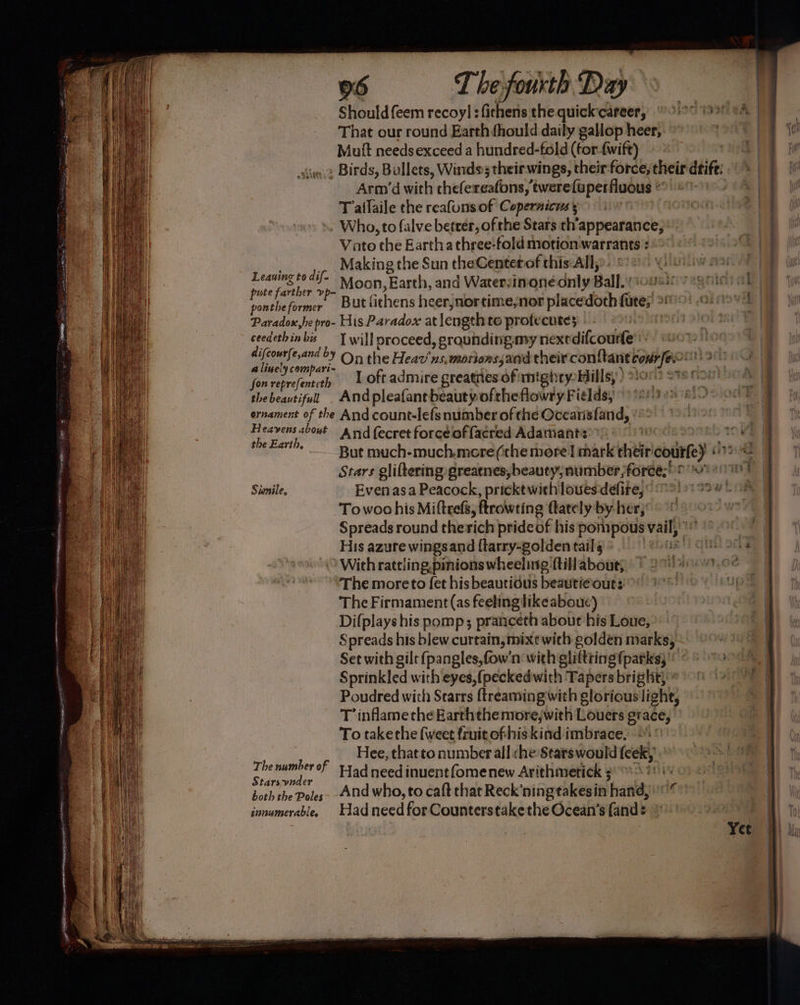 96 The fourth Day
Should seem recoyl: sithens the quick career,
That our round Earth should daily gallop heer,
Must needs exceed a hundred-fold (for swift)
Birds, Bullets, Winds; their wings, their force, their drift.
Arm'd with these reasons, 'twere superfluous
T'assaile the reasons of Copernicus;
Who, to salve better, of the Stars th'appearance,
Vnto the Earth a three-fold motion warrants:
Making the Sun the Center of this All,
Moon, Earth, and Water, in one only Ball.
But sithens heer, nor time, nor place doth sute,
His Paradox at length to prosecute;
I will proceed, grounding my next discourse
On the Heav'ns motions, and their constant course.
I oft admire greatnes of mighty Hills,
And pleasant beauty of the flowry Fields,
And count-less number of the Oceans sand,
And secret force of sacred Adamant:
But much-much more (the more I mark their course)
Stars glistering greatnes, beauty, number, force.
Even as a Peacock, prickt with loues desire,
To woo his Mistress, strowting stately by her,
Spreads round the rich pride of his pompous vail,
His azure wings and starry-golden tail;
With rattling pinions wheeling still about,
The more to set his beautious beautie out:
The Firmament (as feeling like aboue)
Displays his pomp; pranceth about his Loue,
Spreads his blew curtain, mixt with golden marks,
Set with gilt spangles, sow'n with glistring sparks,
Sprinkled with eyes, specked with Tapers bright,
Poudred with Starrs streaming with glorious light,
T'inflame the Earth the more, with Louers grace,
To take the sweet fruit of his kind imbrace.
Hee, that to number all the Stars would seek,
Had need inuent some new Arithmetick;
And who, to cast that Reck'ning takes in hand,
Had need for Counters take the Ocean's sand:
Yet
Leauing to dis-
pute farther vp-
pon the former
Paradox, he pro-
ceedeth in his
discourse, and by
a liuely compari-
son representeth
the beautifull
ornament of the
Heavens about
the Earth.
Simile.
The number of
Stars vnder
both the Poles
innumerable.